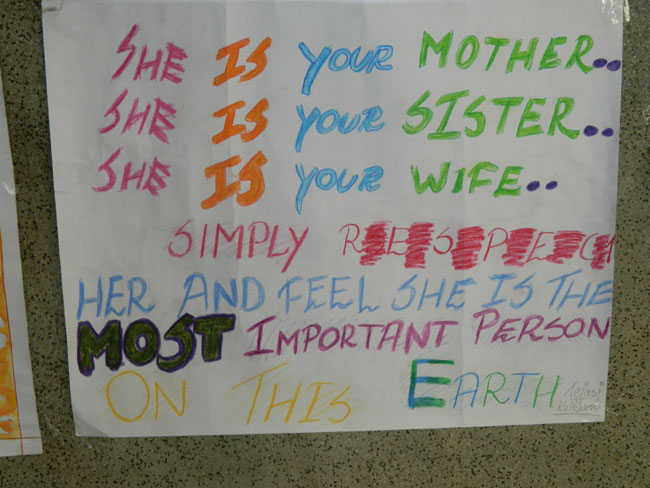 SHE IS YOUR MOTHER..
SHE IS YOUR SISTER..
SHE IS YOUR WIFE..
SIMPLY RESPECT
HER AND FEEL SHE IS THE
MOST IMPORTANT PERSON
ON THIS EARTH